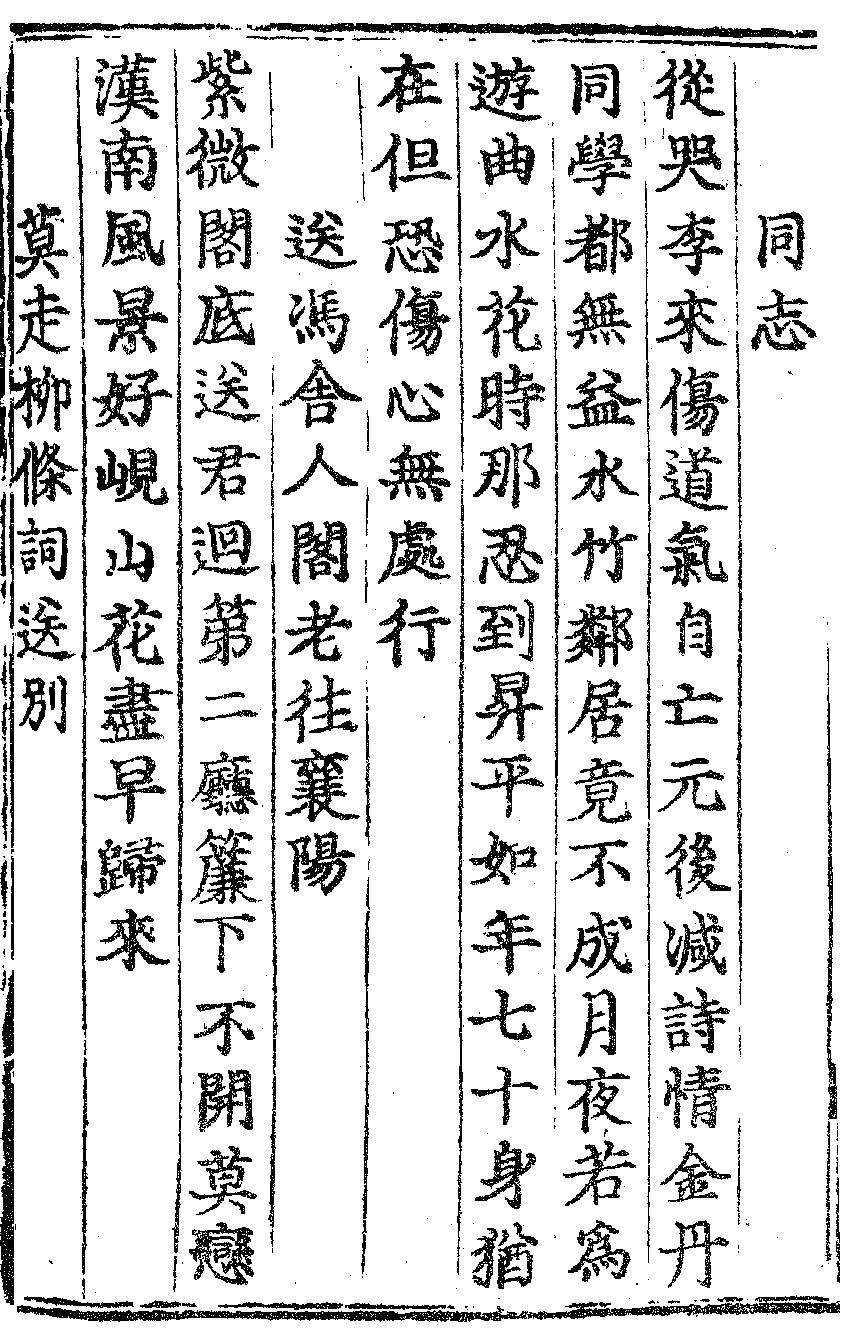 同志
從哭李來傷道氣自亡元後減詩情金丹
同學都無益水竹鄰居竟不成月夜若爲
遊曲水花時那忍到昇平如年七十身猶
在但恐傷心無處行
送馮舎人閣老往襄陽
紫微閣底送君迴第二廳簾下不開莫戀
漢南風景好峴山花盡早歸來
莫走柳條詞送別